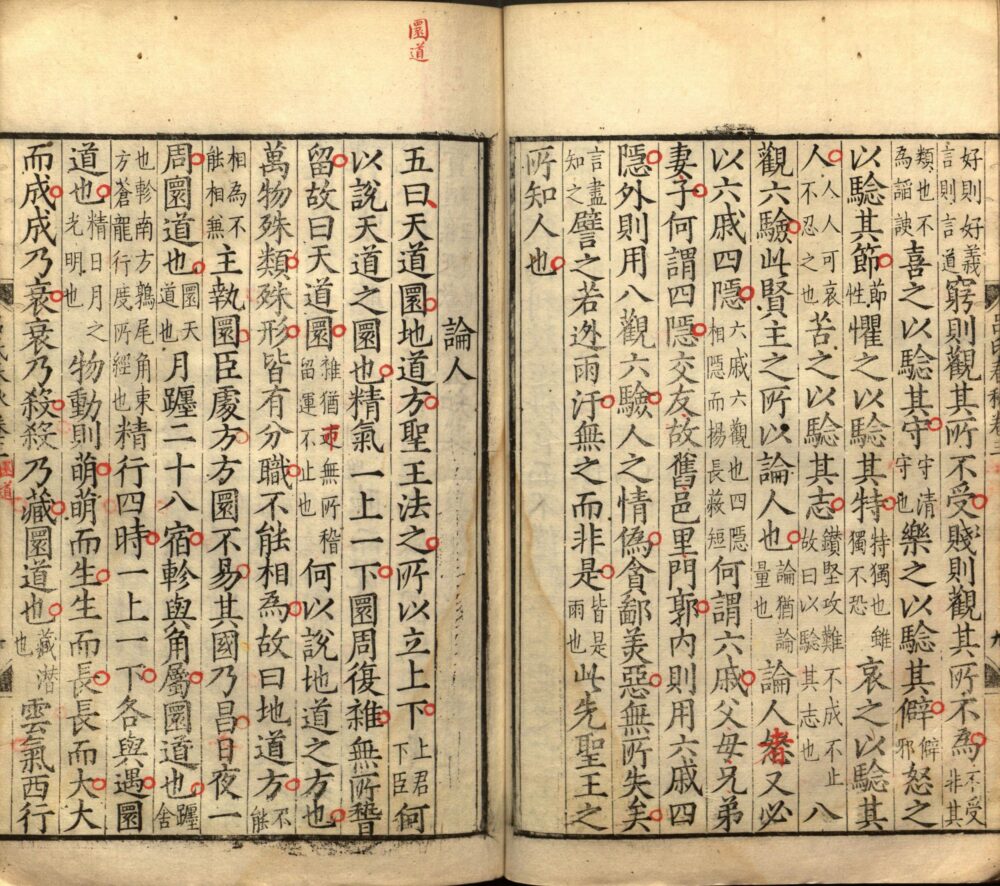 好則好義言則言道窮則觀其所不受賤則觀其所不為不受非其
類也不為謟諛喜之以騐其守守清守也樂之以騐其僻僻邪怒之
以騐其節節性懼之以騐其特特獨也雖獨不恐哀之以騐其
人人人可哀不忍之也苦之以騐其志鑚堅攻難不成不止故曰以騐其志也八
觀六驗此賢主之所以論人也論猶論量也論人者又必
以六戚四隱六戚六觀也四隱相隱而揚長蔽短何謂六戚父母兄弟
妻子何謂四隱交友故舊邑里門郭内則用六戚四
隱外則用八觀六驗人之情偽貪鄙美惡無所失矣
言盡知之譬之若迯雨汙無之而非是皆是雨也此先聖王之
所知人也
論人
圜道
五曰天道圜地道方聖王法之所以立上下上君下臣何
以說天道之圜也精氣一上一下圜周復雜無所稽
留故曰天道圜雜猶帀無所稽留運不止也何以說地道之方也
萬物殊類殊形皆有分職不能相為故曰地道方不能
相為不能相兼主執圜臣處方方圜不易其國乃昌日夜一
周圜道也圜天道也月躔二十八宿軫與角屬圜道也躔舍
也軫南方鶉尾角東方蒼龍行度所經也精行四時一上一下各與遇圜
道也精日月之光明也物動則萌萌而生生而長長而大大
而成成乃衰衰乃殺殺乃藏圜道也藏潜也雲氣西行
圜道